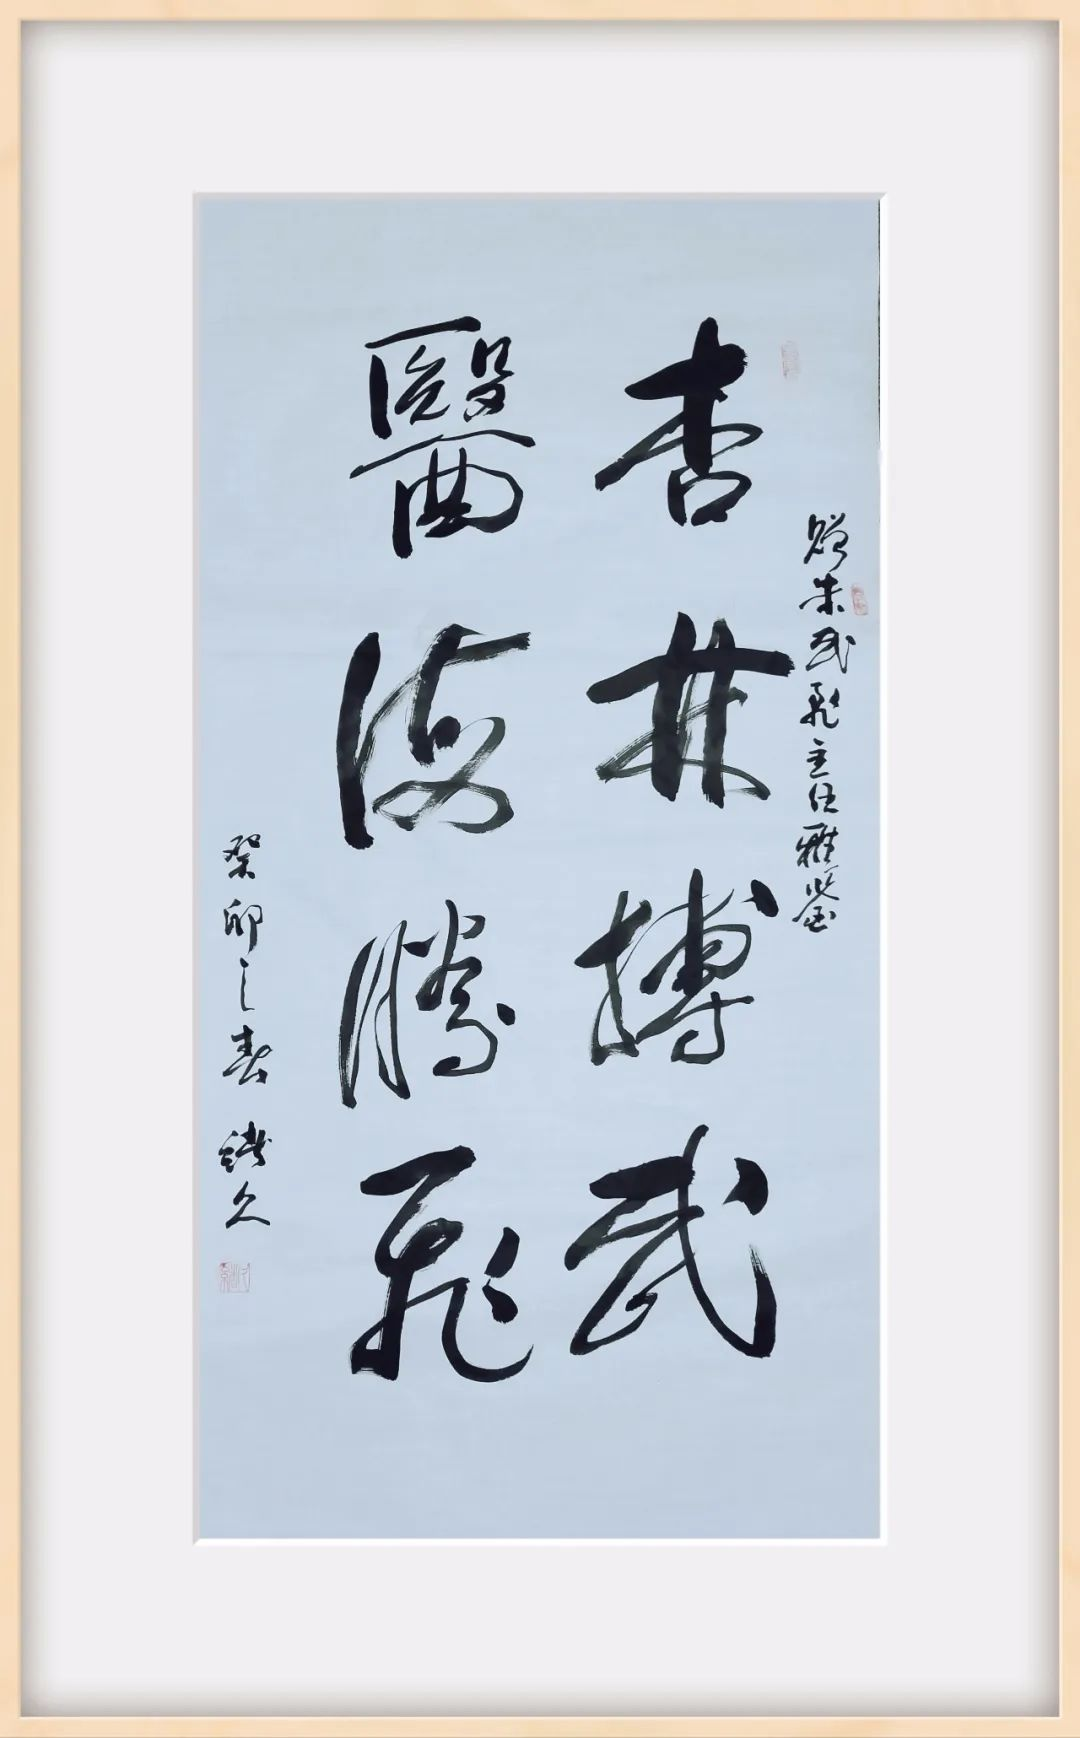 贈朱武飛主任雅鑒
杏林搏武
醫海騰飛
癸卯之春